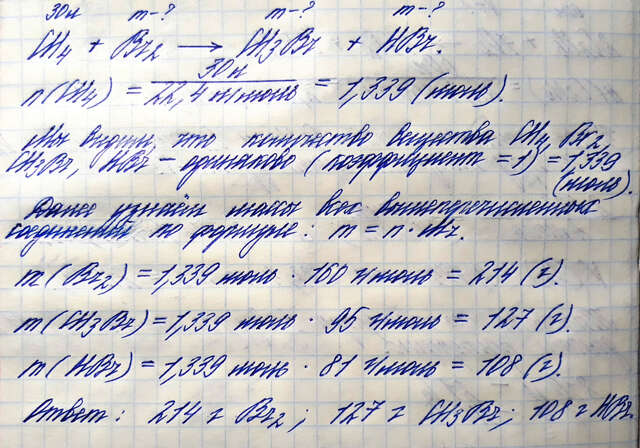 30л m-? m-? m-?
CH4 + Br2 → CH3Br + HBr.
n(CH4) = 30л / 22,4 л/моль = 1,339 (моль).
Мы видим, что количество вещества CH4, Br2,
CH3Br, HBr - одинаково (коэффициент = 1) = 1,339
(моль).
Далее узнаём массы всех вышеперечисленных
соединений по формуле: m = n · Mr.
m(Br2) = 1,339 моль · 160 г/моль = 214 (г).
m(CH3Br) = 1,339 моль · 95 г/моль = 127 (г).
m(HBr) = 1,339 моль · 81 г/моль = 108 (г).
Ответ: 214 г Br2; 127 г CH3Br; 108 г HBr